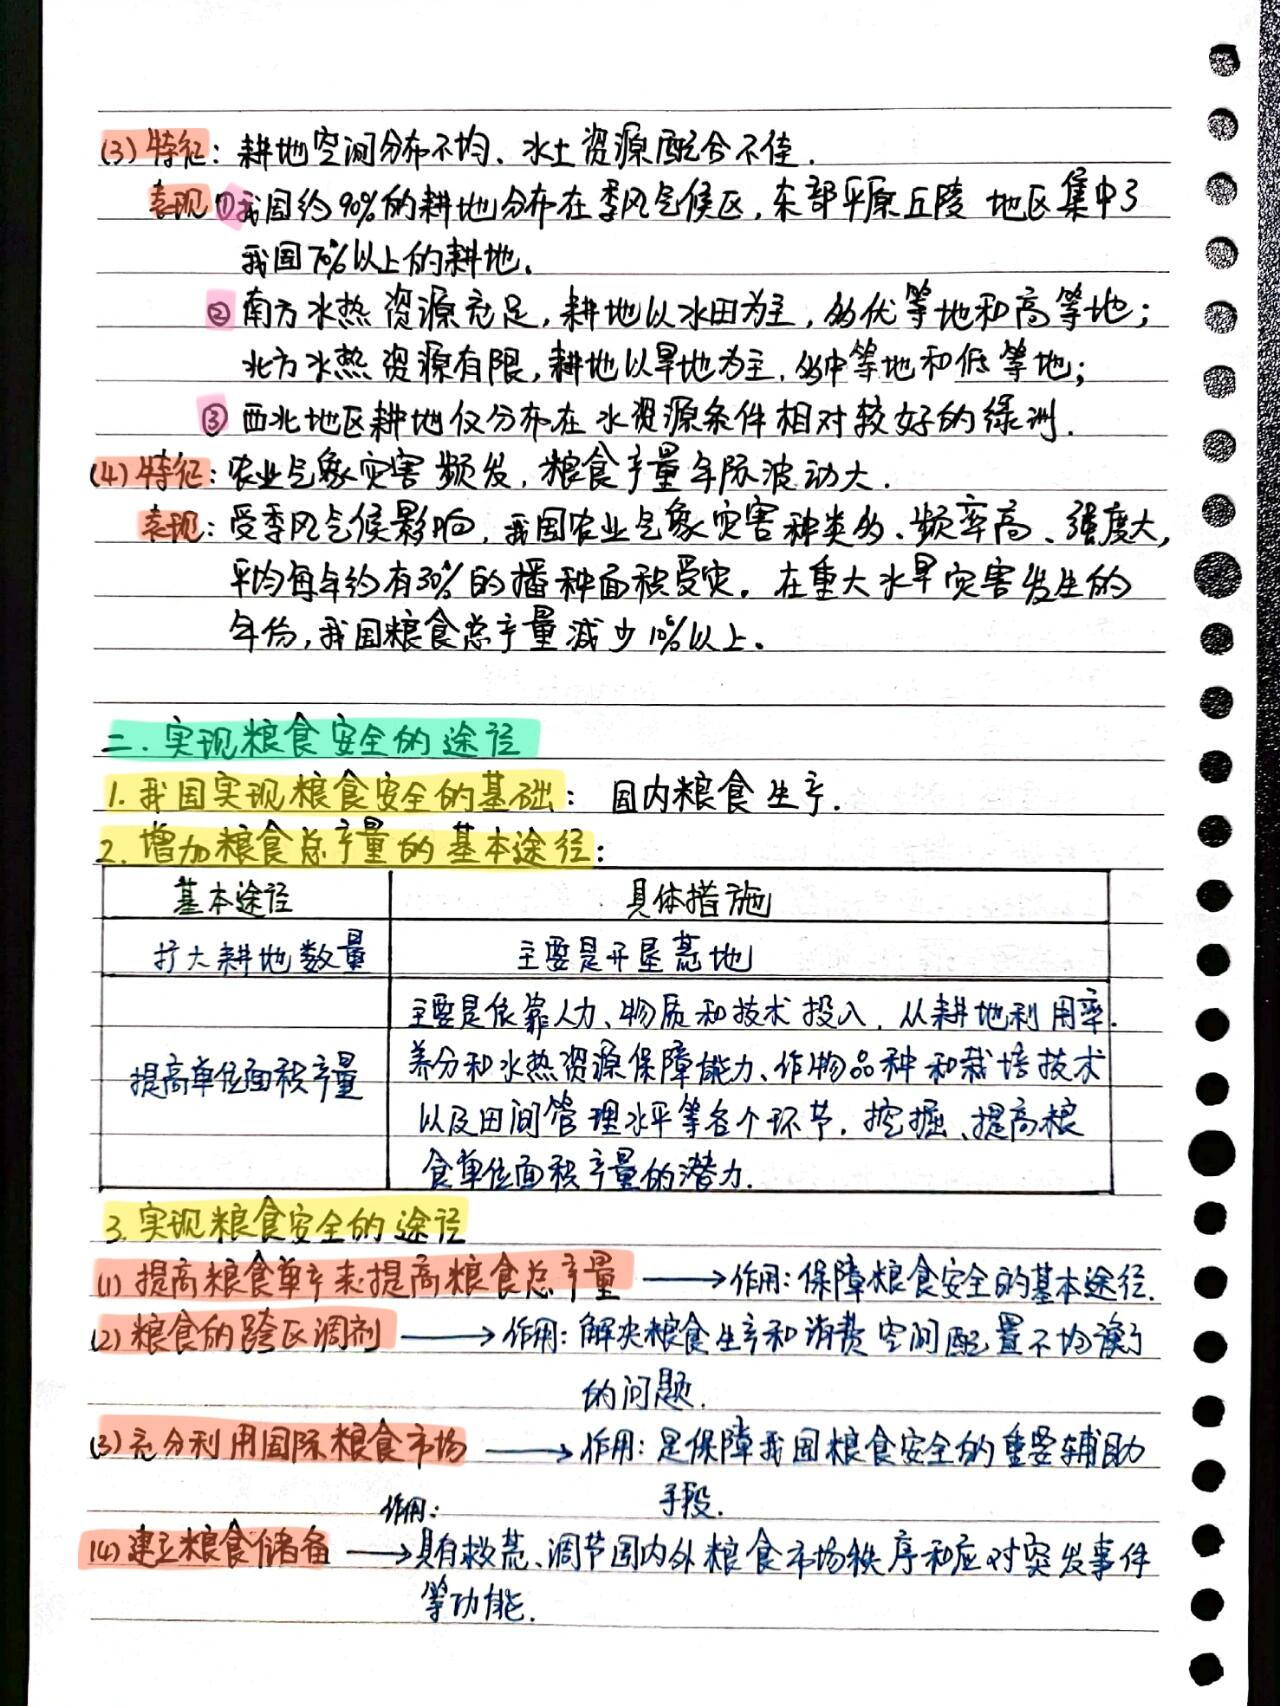 (3) 特征: 耕地空间分布不均、水土资源配合不佳.
表现 ①我国约90%的耕地分布在季风气候区,东部平原丘陵地区集中了
我国70%以上的耕地。
② 南方水热资源充足,耕地以水田为主,多优等地和高等地;
北方水热资源有限,耕地以旱地为主,多中等地和低等地;
③ 西北地区耕地仅分布在水资源条件相对较好的绿洲.
(4) 特征: 农业气象灾害频发,粮食产量年际波动大.
表现: 受季风气候影响,我国农业气象灾害种类多、频率高、强度大,
平均每年约有30%的播种面积受灾。在重大水旱灾害发生的
年份,我国粮食总产量减少10%以上。
二.实现粮食安全的途径
1.我国实现粮食安全的基础: 国内粮食生产.
2.增加粮食总产量的基本途径:
基本途径 具体措施
扩大耕地数量 主要是开垦荒地
提高单位面积产量 主要是依靠人力、物质和技术投入,从耕地利用率.
养分和水热资源保障能力、作物品种和栽培技术
以及田间管理水平等各个环节,挖掘、提高粮
食单位面积产量的潜力.
3.实现粮食安全的途径
(1) 提高粮食单产来提高粮食总产量 → 作用:保障粮食安全的基本途径.
(2) 粮食的跨区调剂 → 作用:解决粮食生产和消费空间配置不均衡
的问题.
(3) 充分利用国际粮食市场 → 作用:是保障我国粮食安全的重要辅助
手段.
(4) 建立粮食储备 → 作用: 具有救荒、调节国内外粮食市场秩序和应对突发事件
等功能.